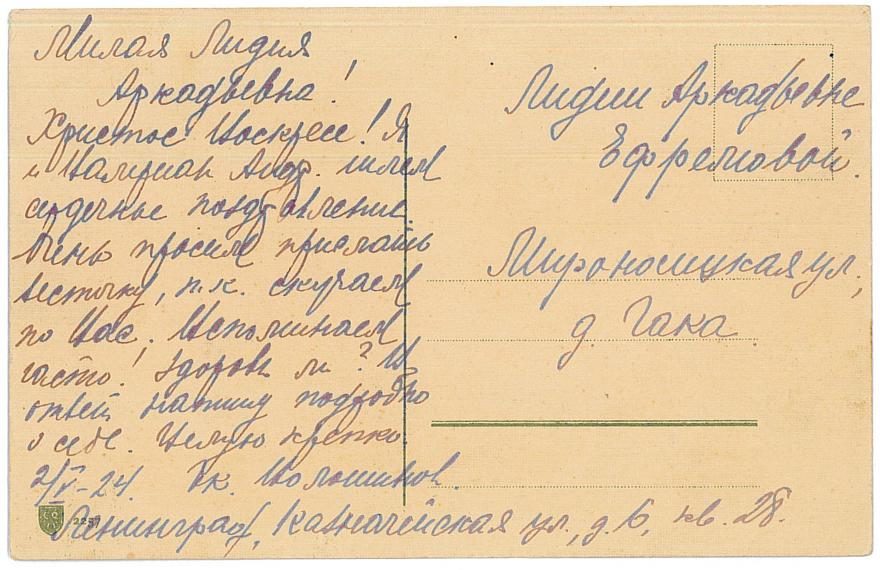 Милая Лидия
Аркадьевна!
Христос Воскресе! Я
и Валериан Андр. шлем
сердечные поздравление.
Очень просим прислать
весточку, т.к. скучаем
по Вас. Вспоминаем
часто! Здоровы ли? В
ответ напишу подробно
о себе. Целую крепко.
2/V-24. Ек. Волошинов.
Ленинград, Казначейская ул., д. 6, кв. 28.
Лидии Аркадьевне
Ефремовой.
Мироносицкая ул.,
д. Гака.